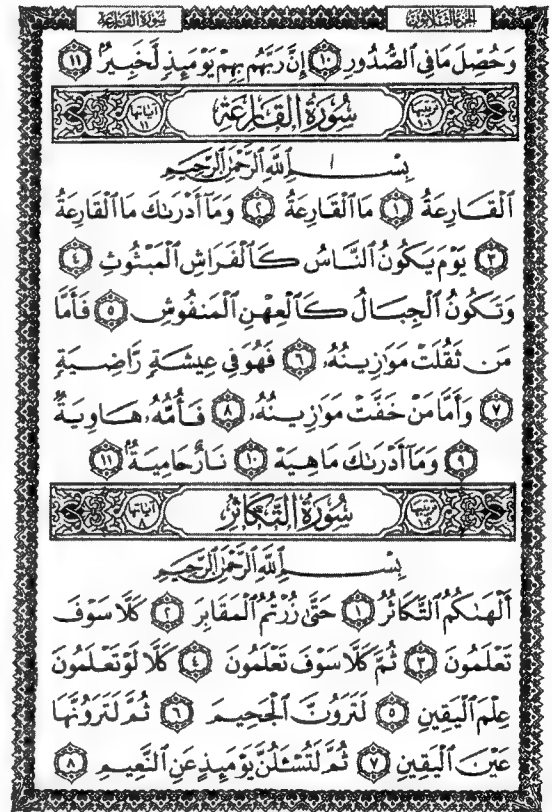 الجزء الثلاثون سورة القارعة
وَحُصِّلَ مَا فِي ٱلصُّدُورِ ١٠ إِنَّ رَبَّهُم بِهِمْ يَوْمَئِذٍ لَّخَبِيرٌ ١١
ترتيبها ١٠١ سُورَةُ القَارِعَةِ آياتها ١١
بِسْمِ ٱللَّهِ ٱلرَّحْمَٰنِ ٱلرَّحِيمِ
ٱلْقَارِعَةُ ١ مَا ٱلْقَارِعَةُ ٢ وَمَآ أَدْرَىٰكَ مَا ٱلْقَارِعَةُ
٣ يَوْمَ يَكُونُ ٱلنَّاسُ كَٱلْفَرَاشِ ٱلْمَبْثُوثِ ٤
وَتَكُونُ ٱلْجِبَالُ كَٱلْعِهْنِ ٱلْمَنفُوشِ ٥ فَأَمَّا
مَن ثَقُلَتْ مَوَٰزِينُهُۥ ٦ فَهُوَ فِي عِيشَةٍ رَّاضِيَةٍ
٧ وَأَمَّا مَنْ خَفَّتْ مَوَٰزِينُهُۥ ٨ فَأُمُّهُۥ هَاوِيَةٌ
٩ وَمَآ أَدْرَىٰكَ مَا هِيَهْ ١٠ نَارٌ حَامِيَةٌ ١١
ترتيبها ١٠٢ سُورَةُ التَّكَاثُرِ آياتها ٨
بِسْمِ ٱللَّهِ ٱلرَّحْمَٰنِ ٱلرَّحِيمِ
أَلْهَىٰكُمُ ٱلتَّكَاثُرُ ١ حَتَّىٰ زُرْتُمُ ٱلْمَقَابِرَ ٢ كَلَّا سَوْفَ
تَعْلَمُونَ ٣ ثُمَّ كَلَّا سَوْفَ تَعْلَمُونَ ٤ كَلَّا لَوْ تَعْلَمُونَ
عِلْمَ ٱلْيَقِينِ ٥ لَتَرَوُنَّ ٱلْجَحِيمَ ٦ ثُمَّ لَتَرَوُنَّهَا
عَيْنَ ٱلْيَقِينِ ٧ ثُمَّ لَتُسْـَٔلُنَّ يَوْمَئِذٍ عَنِ ٱلنَّعِيمِ ٨